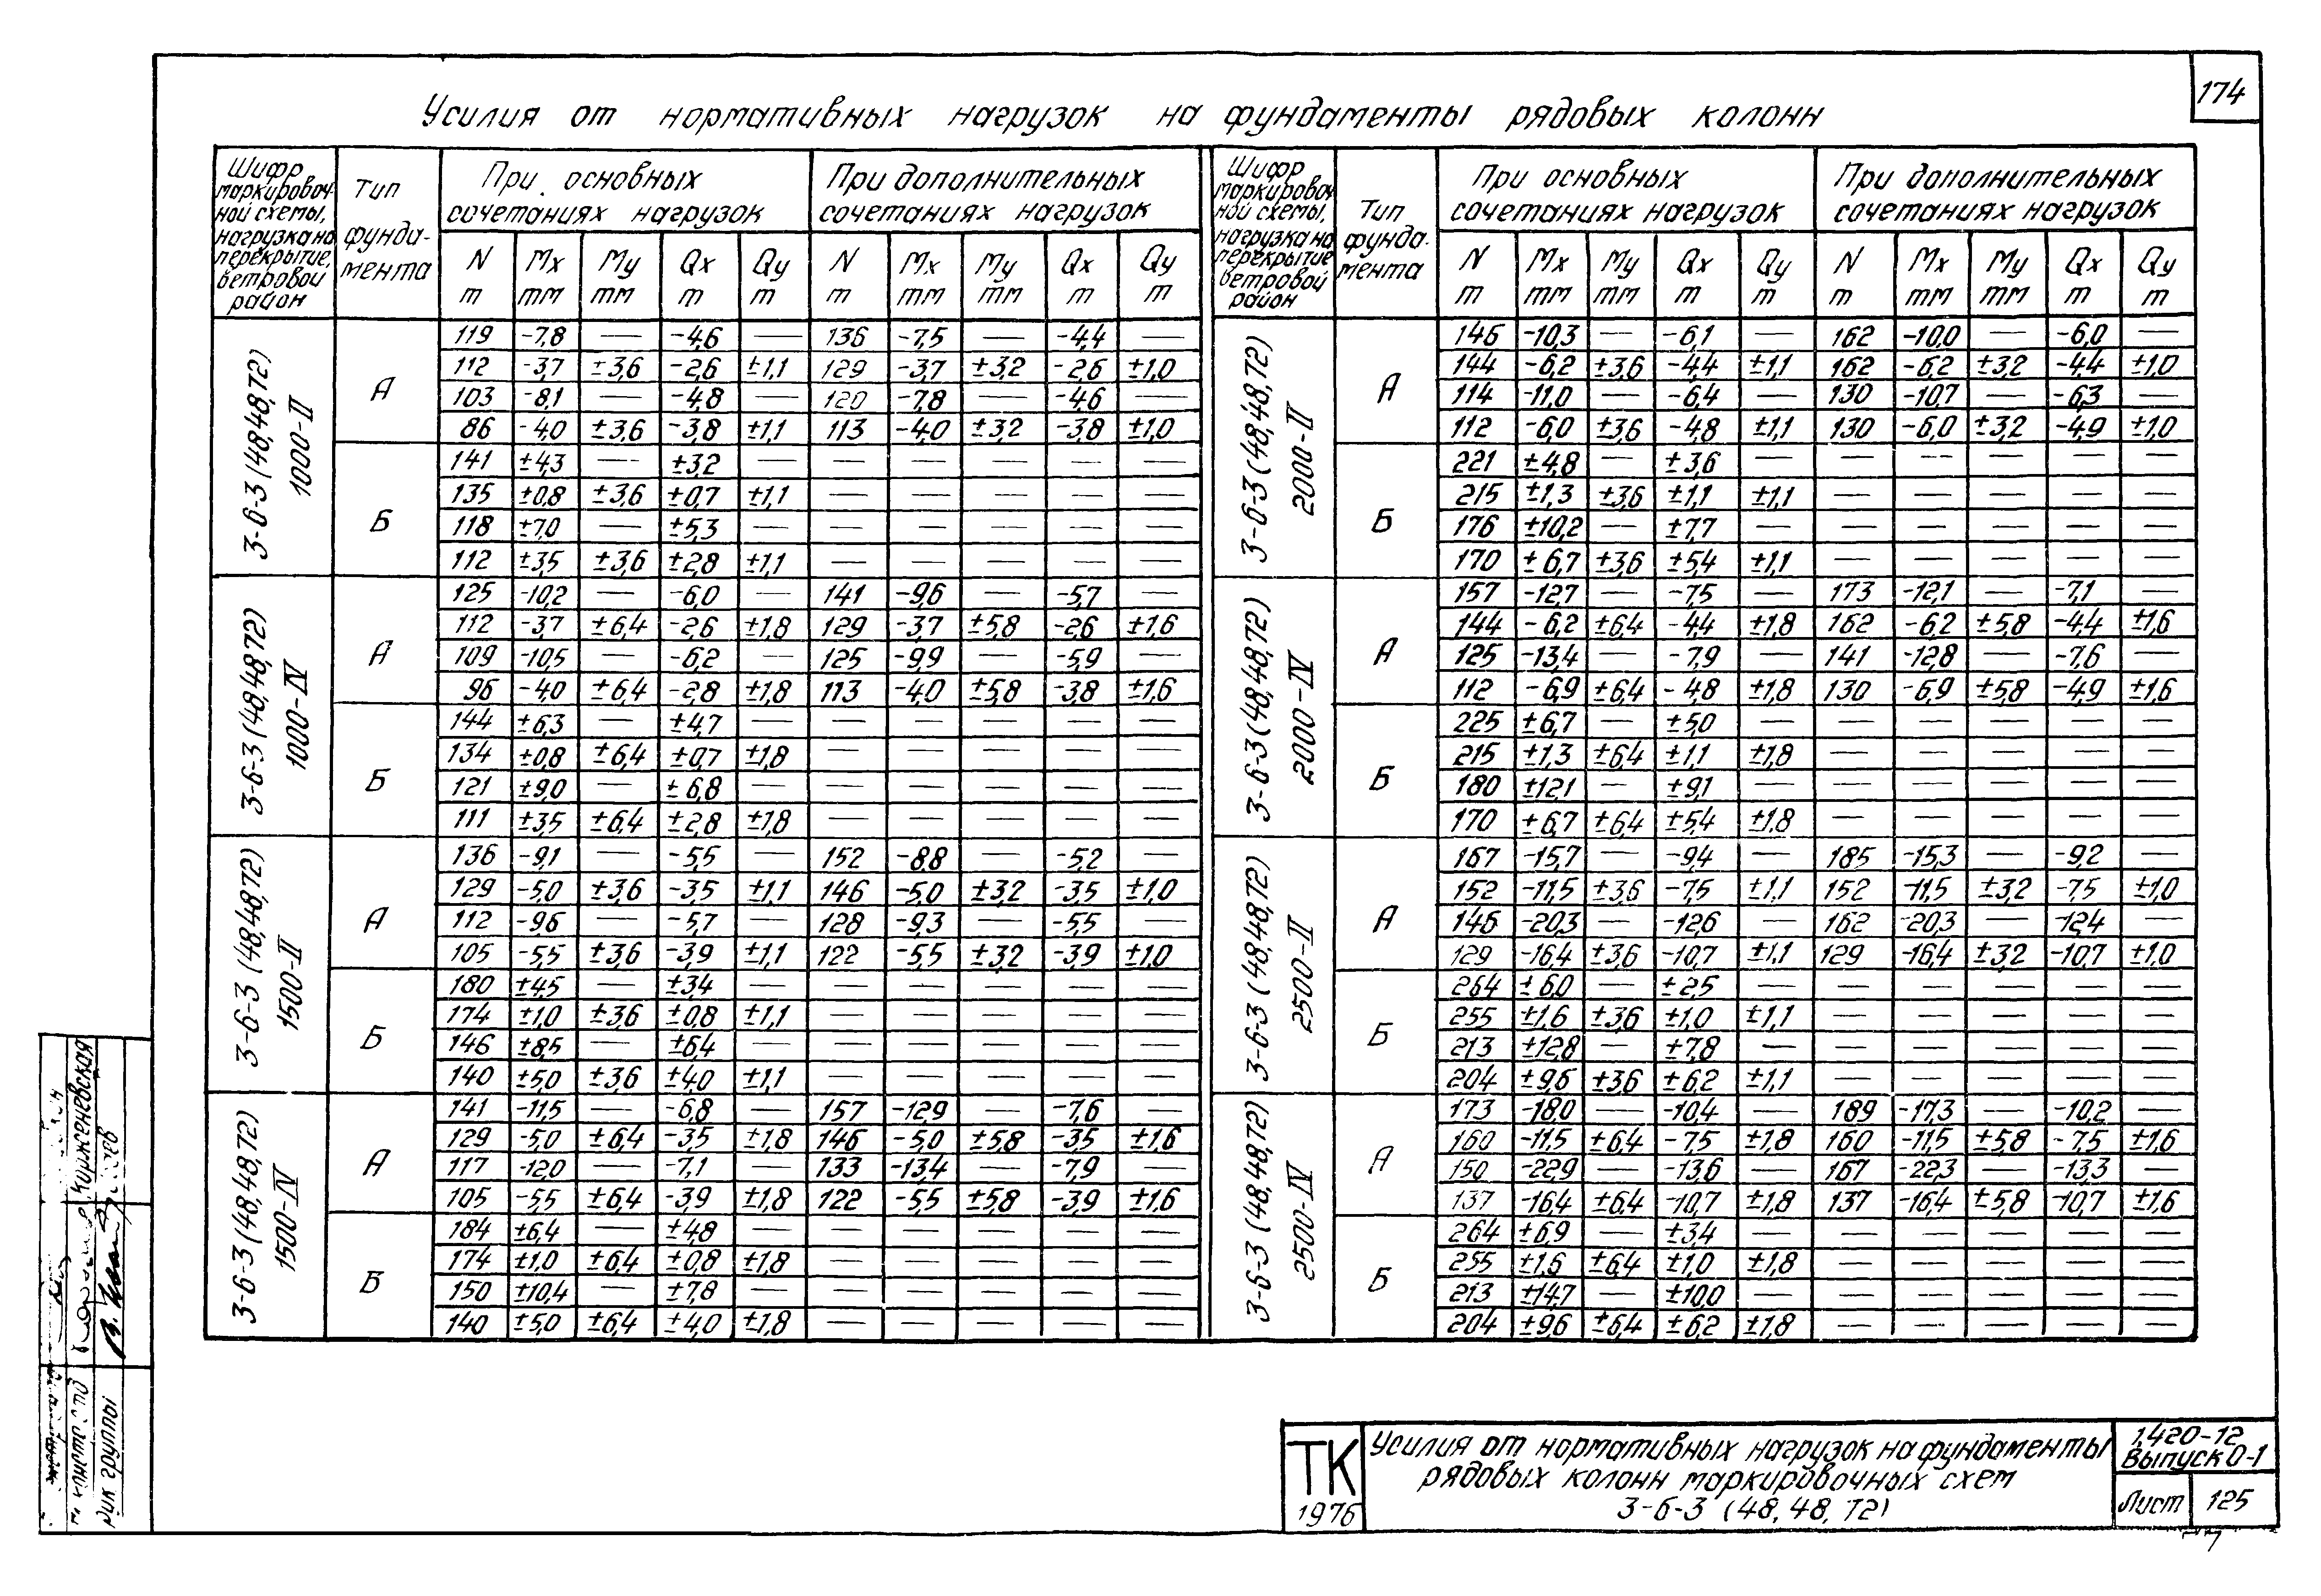 174
Усилия от нормативных нагрузок на фундаменты рядовых колонн
Шифр маркировочной схемы, нагрузка на перекрытие, ветровой район | Тип фундамента | При основных сочетаниях нагрузок | При дополнительных сочетаниях нагрузок
N т | Mx тм | My тм | Qx т | Qy т | N т | Mx тм | My тм | Qx т | Qy т
3-6-3 (48,48,72) 1000-II
А
119 -7,8 — -4,6 — 136 -7,5 — -4,4 —
112 -3,7 ±3,6 -2,6 ±1,1 129 -3,7 ±3,2 -2,6 ±1,0
103 -8,1 — -4,8 — 120 -7,8 — -4,6 —
86 -4,0 ±3,6 -3,8 ±1,1 113 -4,0 ±3,2 -3,8 ±1,0
Б
141 ±4,3 — ±3,2 — — — — — —
135 ±0,8 ±3,6 ±0,7 ±1,1 — — — — —
118 ±7,0 — ±5,3 — — — — — —
112 ±3,5 ±3,6 ±2,8 ±1,1 — — — — —
3-6-3 (48,48,72) 1000-IV
А
125 -10,2 — -6,0 — 141 -9,6 — -5,7 —
112 -3,7 ±6,4 -2,6 ±1,8 129 -3,7 ±5,8 -2,6 ±1,6
109 -10,5 — -6,2 — 125 -9,9 — -5,9 —
96 -4,0 ±6,4 -2,8 ±1,8 113 -4,0 ±5,8 -3,8 ±1,6
Б
144 ±6,3 — ±4,7 — — — — — —
134 ±0,8 ±6,4 ±0,7 ±1,8 — — — — —
121 ±9,0 — ±6,8 — — — — — —
111 ±3,5 ±6,4 ±2,8 ±1,8 — — — — —
3-6-3 (48,48,72) 1500-II
А
136 -9,1 — -5,5 — 152 -8,8 — -5,2 —
129 -5,0 ±3,6 -3,5 ±1,1 146 -5,0 ±3,2 -3,5 ±1,0
112 -9,6 — -5,7 — 128 -9,3 — -5,5 —
105 -5,5 ±3,6 -3,9 ±1,1 122 -5,5 ±3,2 -3,9 ±1,0
Б
180 ±4,5 — ±3,4 — — — — — —
174 ±1,0 ±3,6 ±0,8 ±1,1 — — — — —
146 ±8,5 — ±6,4 — — — — — —
140 ±5,0 ±3,6 ±4,0 ±1,1 — — — — —
3-6-3 (48,48,72) 1500-IV
А
141 -11,5 — -6,8 — 157 -12,9 — -7,6 —
129 -5,0 ±6,4 -3,5 ±1,8 146 -5,0 ±5,8 -3,5 ±1,6
117 -12,0 — -7,1 — 133 -13,4 — -7,9 —
105 -5,5 ±6,4 -3,9 ±1,8 122 -5,5 ±5,8 -3,9 ±1,6
Б
184 ±6,4 — ±4,8 — — — — — —
174 ±1,0 ±6,4 ±0,8 ±1,8 — — — — —
150 ±10,4 — ±7,8 — — — — — —
140 ±5,0 ±6,4 ±4,0 ±1,8 — — — — —
Шифр маркировочной схемы, нагрузка на перекрытие ветровой район | Тип фундамента | При основных сочетаниях нагрузок | При дополнительных сочетаниях нагрузок
N т | Mx тм | My тм | Qx т | Qy т | N т | Mx тм | My тм | Qx т | Qy т
3-6-3 (48,48,72) 2000-II
А
146 -10,3 — -6,1 — 162 -10,0 — -6,0 —
144 -6,2 ±3,6 -4,4 ±1,1 162 -6,2 ±3,2 -4,4 ±1,0
114 -11,0 — -6,4 — 130 -10,7 — -6,3 —
112 -6,0 ±3,6 -4,8 ±1,1 130 -6,0 ±3,2 -4,9 ±1,0
Б
221 ±4,8 — ±3,6 — — — — — —
215 ±1,3 ±3,6 ±1,1 ±1,1 — — — — —
176 ±10,2 — ±7,7 — — — — — —
170 ±6,7 ±3,6 ±5,4 ±1,1 — — — — —
3-6-3 (48,48,72) 2000-IV
А
157 -12,7 — -7,5 — 173 -12,1 — -7,1 —
144 -6,2 ±6,4 -4,4 ±1,8 162 -6,2 ±5,8 -4,4 ±1,6
125 -13,4 — -7,9 — 141 -12,8 — -7,6 —
112 -6,9 ±6,4 -4,8 ±1,8 130 -6,9 ±5,8 -4,9 ±1,6
Б
225 ±6,7 — ±5,0 — — — — — —
215 ±1,3 ±6,4 ±1,1 ±1,8 — — — — —
180 ±12,1 — ±9,1 — — — — — —
170 ±6,7 ±6,4 ±5,4 ±1,8 — — — — —
3-6-3 (48,48,72) 2500-II
А
167 -15,7 — -9,4 — 185 -15,3 — -9,2 —
152 -11,5 ±3,6 -7,5 ±1,1 152 -11,5 ±3,2 -7,5 ±1,0
146 -20,3 — -12,6 — 162 -20,3 — -12,4 —
129 -16,4 ±3,6 -10,7 ±1,1 129 -16,4 ±3,2 -10,7 ±1,0
Б
264 ±6,0 — ±2,5 — — — — — —
255 ±1,6 ±3,6 ±1,0 ±1,1 — — — — —
213 ±12,8 — ±7,8 — — — — — —
204 ±9,6 ±3,6 ±6,2 ±1,1 — — — — —
3-6-3 (48,48,72) 2500-IV
А
173 -18,0 — -10,4 — 189 -17,3 — -10,2 —
160 -11,5 ±6,4 -7,5 ±1,8 160 -11,5 ±5,8 -7,5 ±1,6
150 -22,9 — -13,6 — 167 -22,3 — -13,3 —
137 -16,4 ±6,4 -10,7 ±1,8 137 -16,4 ±5,8 -10,7 ±1,6
Б
264 ±6,9 — ±3,4 — — — — — —
255 ±1,6 ±6,4 ±1,0 ±1,8 — — — — —
213 ±14,7 — ±10,0 — — — — — —
204 ±9,6 ±6,4 ±6,2 ±1,8 — — — — —
Коржженевская
рук группы
ТК
1976
Усилия от нормативных нагрузок на фундаменты
рядовых колонн маркировочных схем
3-6-3 (48, 48, 72)
1.420-12
Выпуск 0-1
Лист 125